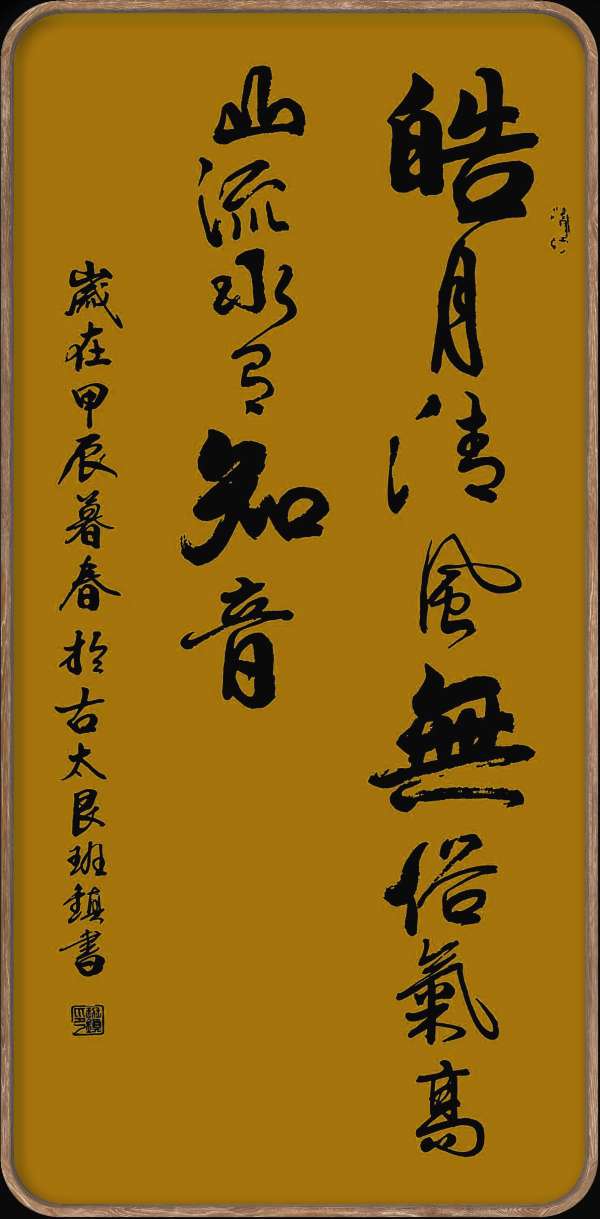 皓月清風無俗氣高
山流水有知音
歲在甲辰暮春於古太艮班鎮書